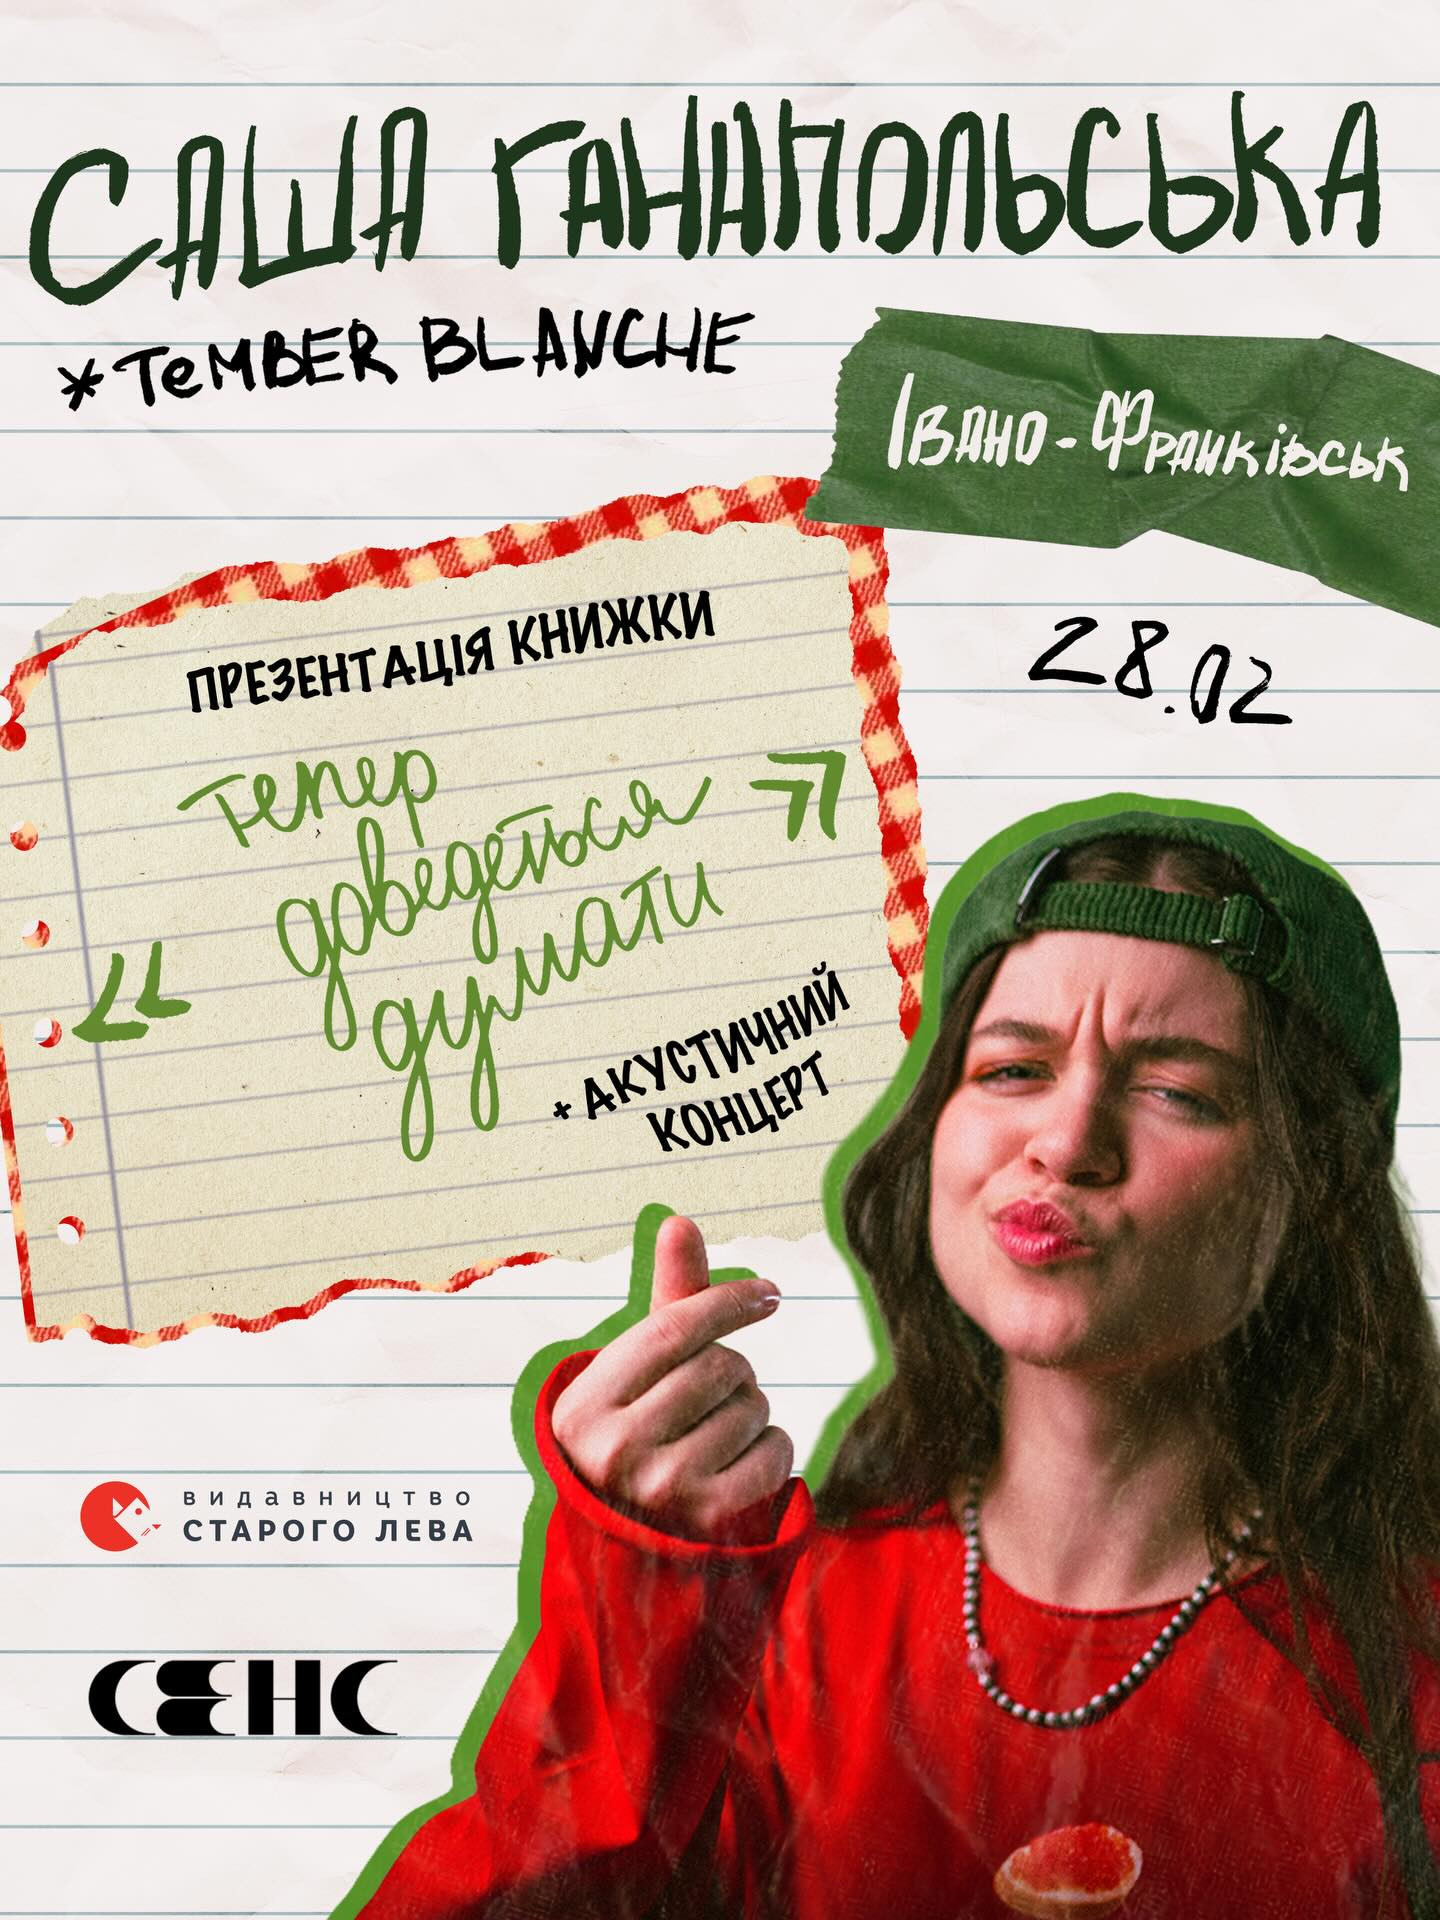 Саша Ганапольська
*TeMBER BLANCHE
Івано-Франківськ
28.02
ПРЕЗЕНТАЦІЯ КНИЖКИ
« тепер
доведеться
думати »
+ АКУСТИЧНИЙ
КОНЦЕРТ
ВИДАВНИЦТВО
СТАРОГО ЛЕВА
СЕНС